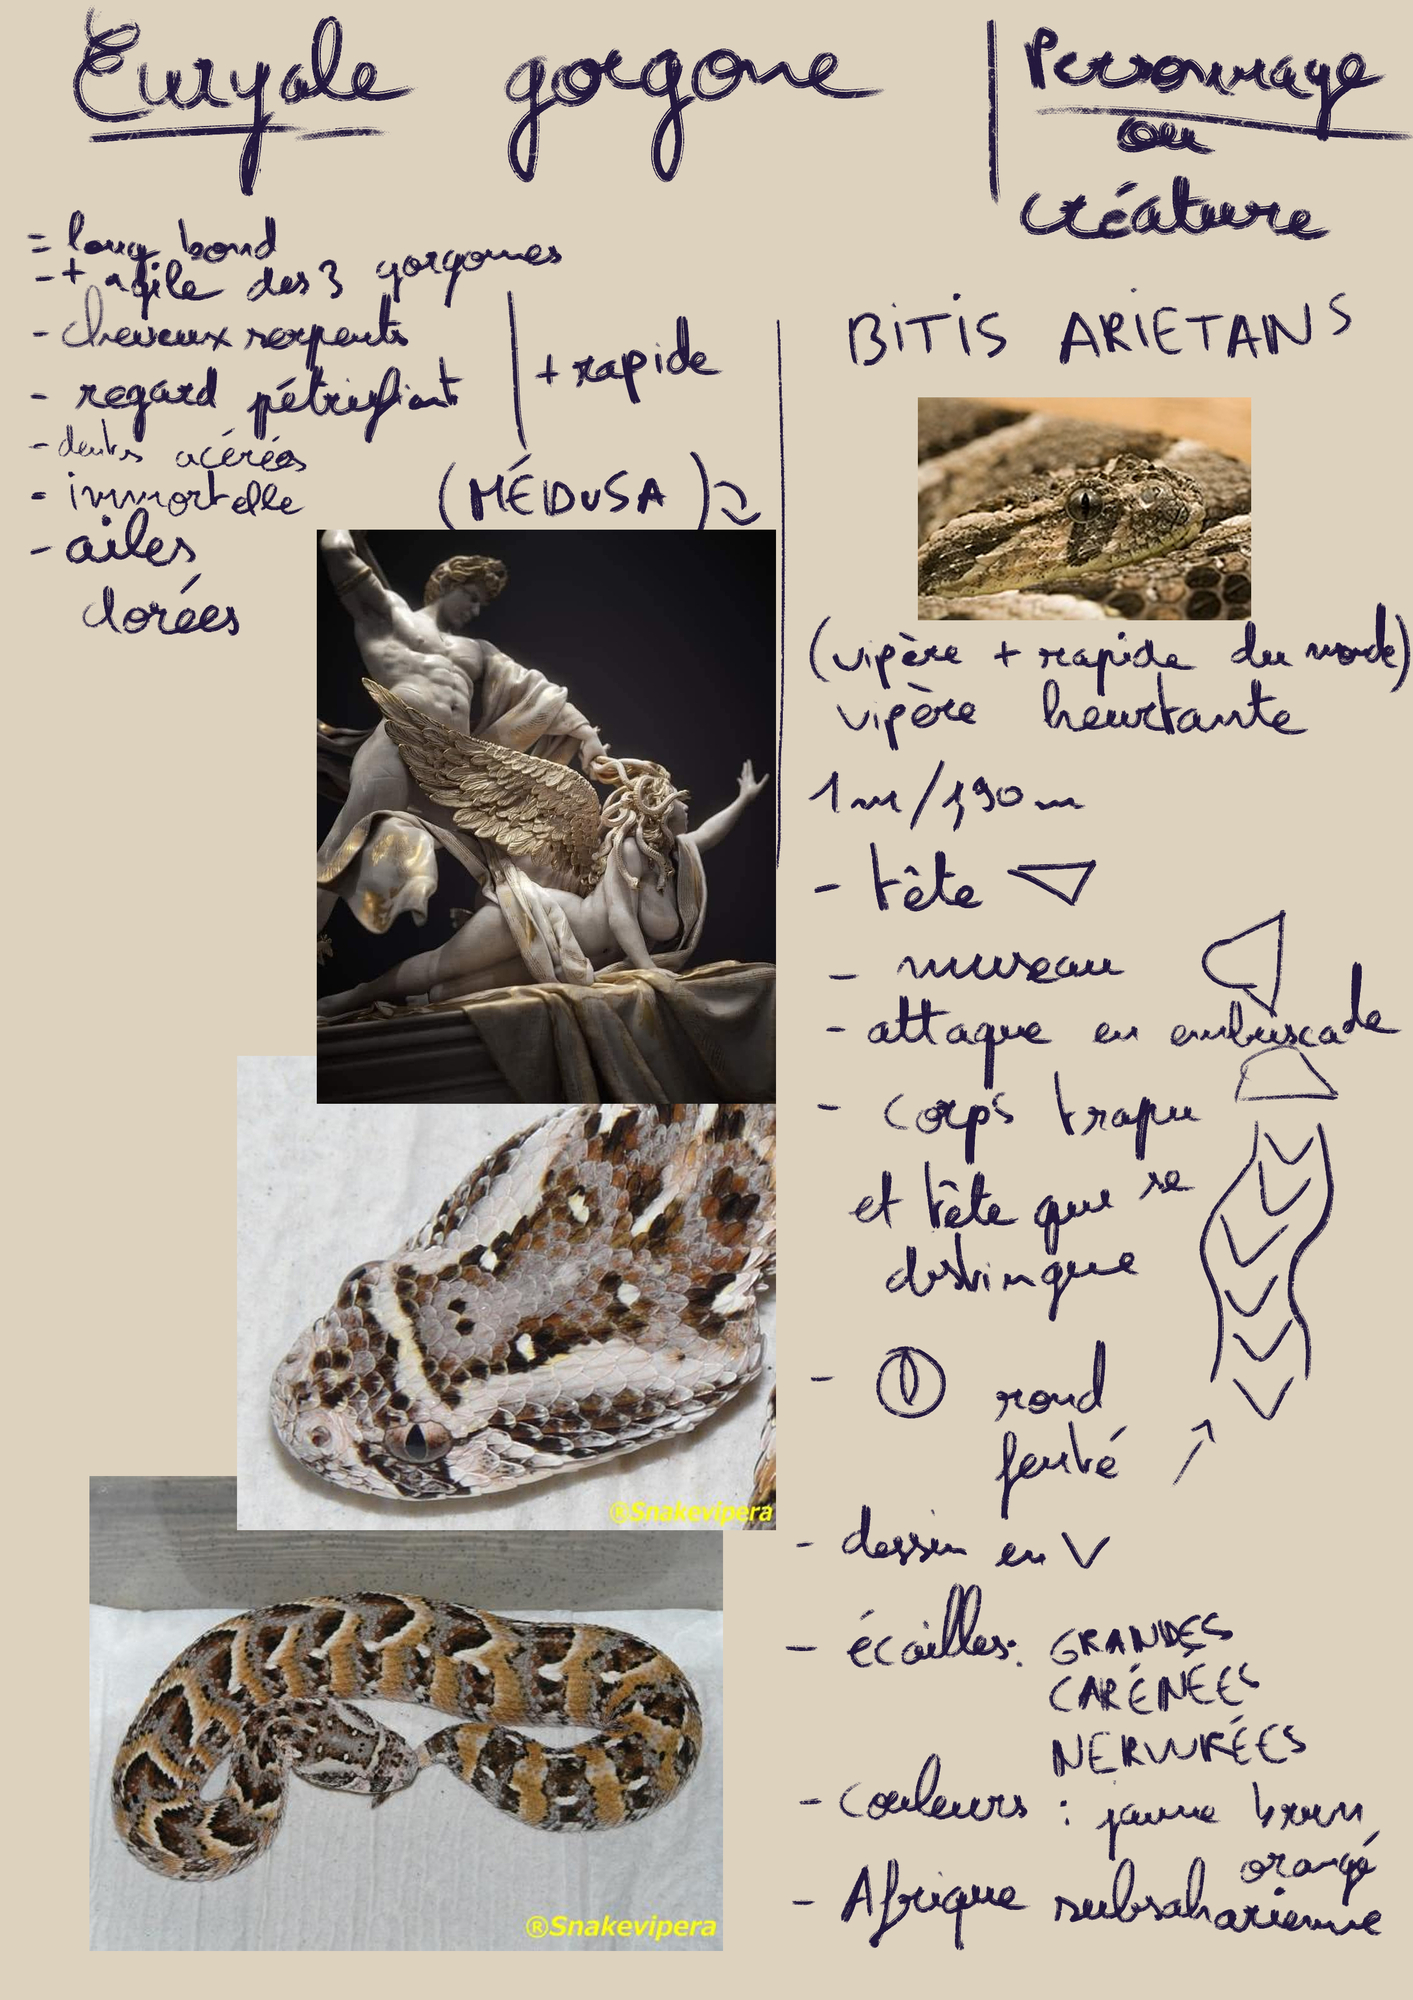 Euryale gorgone
Personnage
ou
créature
= long bond
- + agile des 3 gorgones
- cheveux serpents
- regard pétrifiant
+ rapide
- dents acérées
- immortelle
- ailes
dorées
(MÉDUSA)
BITIS ARIETANS
(vipère + rapide du monde)
vipère heurtante
1m/1,90m
- tête
- museau
- attaque en embuscade
- corps trapu
et tête que se
distingue
- rond
fenté
- dessin en V
- écailles: GRANDES
CARÉNÉES
NERVURÉES
- couleurs : jaune brun
orangé
- Afrique subsaharienne
®Snakevipera
®Snakevipera